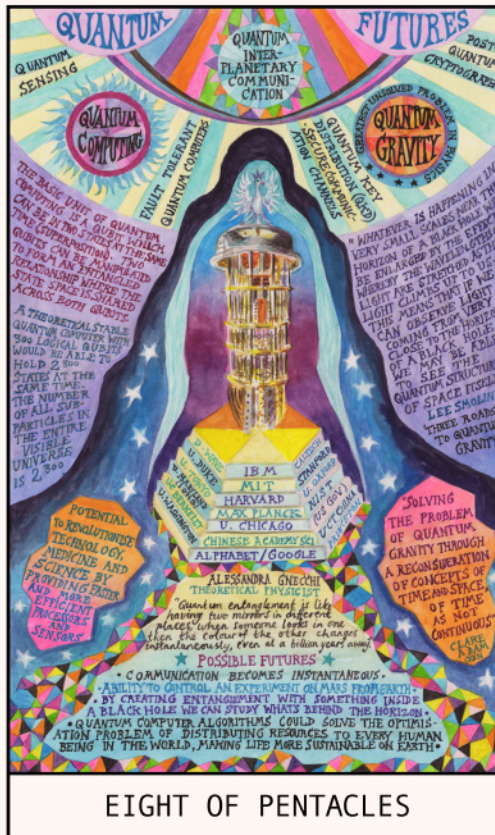 QUANTUM
FUTURES
QUANTUM
INTER-
PLANETARY
COMMUNI-
CATION
QUANTUM
SENSING
POST
QUANTUM
CRYPTOGRAPH
QUANTUM
COMPUTING
FAULT TOLERANT
QUANTUM COMPUTERS
QUANTUM KEY
DISTRIBUTION (QKD)
-SECURE COMMUNIC-
ATION CHANNELS
GREATEST UNSOLVED PROBLEM IN PHYSICS
QUANTUM
GRAVITY
THE BASIC UNIT OF QUANTUM
COMPUTING IS A QUBIT WHICH
CAN BE IN TWO STATES AT THE SAME
TIME (SUPERPOSITION). TWO
QUBITS CAN BE MANIPULATED
TO FORM AN ENTANGLED
RELATIONSHIP WHERE THE
STATE SPACE IS SHARED
ACROSS BOTH QUBITS
A THEORETICAL STABLE
QUANTUM COMPUTER WITH
300 LOGICAL QUBITS
WOULD BE ABLE TO
HOLD 2300
STATES AT THE
SAME TIME.
THE NUMBER
OF ALL SUB-
PARTICLES IN
THE ENTIRE
VISIBLE
UNIVERSE
IS 2300
"WHATEVER IS HAPPENING IN
VERY SMALL SCALES NEAR THE
HORIZON OF A BLACK HOLE WI
BE ENLARGED BY THE EFFEC
WHEREBY THE WAVELENGTHS
LIGHT ARE STRETCHED AS THE
LIGHT CLIMBS UP TO US.
THIS MEANS THAT IF WE
CAN OBSERVE LIGHT
COMING FROM VERY
CLOSE TO THE HORIZON
OF A BLACK HOLE
WE MAY BE ABLE
TO SEE THE
QUANTUM STRUCTURE
OF SPACE ITSELF
LEE SMOLIN
THREE ROADS
TO QUANTUM
GRAVITY
D-WAVE
U. DUKE
U. TOKYO
U. MARYLAND
U. BERKELEY
U. WASHINGTON
IBM
MIT
HARVARD
MAX PLANCK
U. CHICAGO
CHINESE ACADEMY SCI.
ALPHABET/GOOGLE
CALTECH
STANFORD
U. OXFORD
NIST
(US GOV)
UCT CHINA
PRINCETON
POTENTIAL
TO REVOLUTIONISE
TECHNOLOGY,
MEDICINE AND
SCIENCE BY
PROVIDING FASTER
AND MORE
EFFICIENT
PROCESSORS
AND
SENSORS
"SOLVING
THE PROBLEM
OF QUANTUM
GRAVITY THROUGH
A RECONSIDERATION
OF CONCEPTS OF
TIME AND SPACE,
OF TIME
AS NOT
CONTINUOUS"
CLARE
ADAM
ALESSANDRA GNECCHI
THEORETICAL PHYSICIST
"Quantum entanglement is like
having two mirrors in different
places, when someone looks in one
then the colour of the other changes
instantaneously, even at a billion years away.
POSSIBLE FUTURES'
• COMMUNICATION BECOMES INSTANTANEOUS •
• ABILITY TO CONTROL AN EXPERIMENT ON MARS FROM EARTH •
• BY CREATING ENTANGLEMENT WITH SOMETHING INSIDE
A BLACK HOLE WE CAN STUDY WHATS BEHIND THE HORIZON •
• QUANTUM COMPUTER ALGORITHMS COULD SOLVE THE OPTIMIS-
ATION PROBLEM OF DISTRIBUTING RESOURCES TO EVERY HUMAN
BEING IN THE WORLD, MAKING LIFE MORE SUSTAINABLE ON EARTH •
EIGHT OF PENTACLES